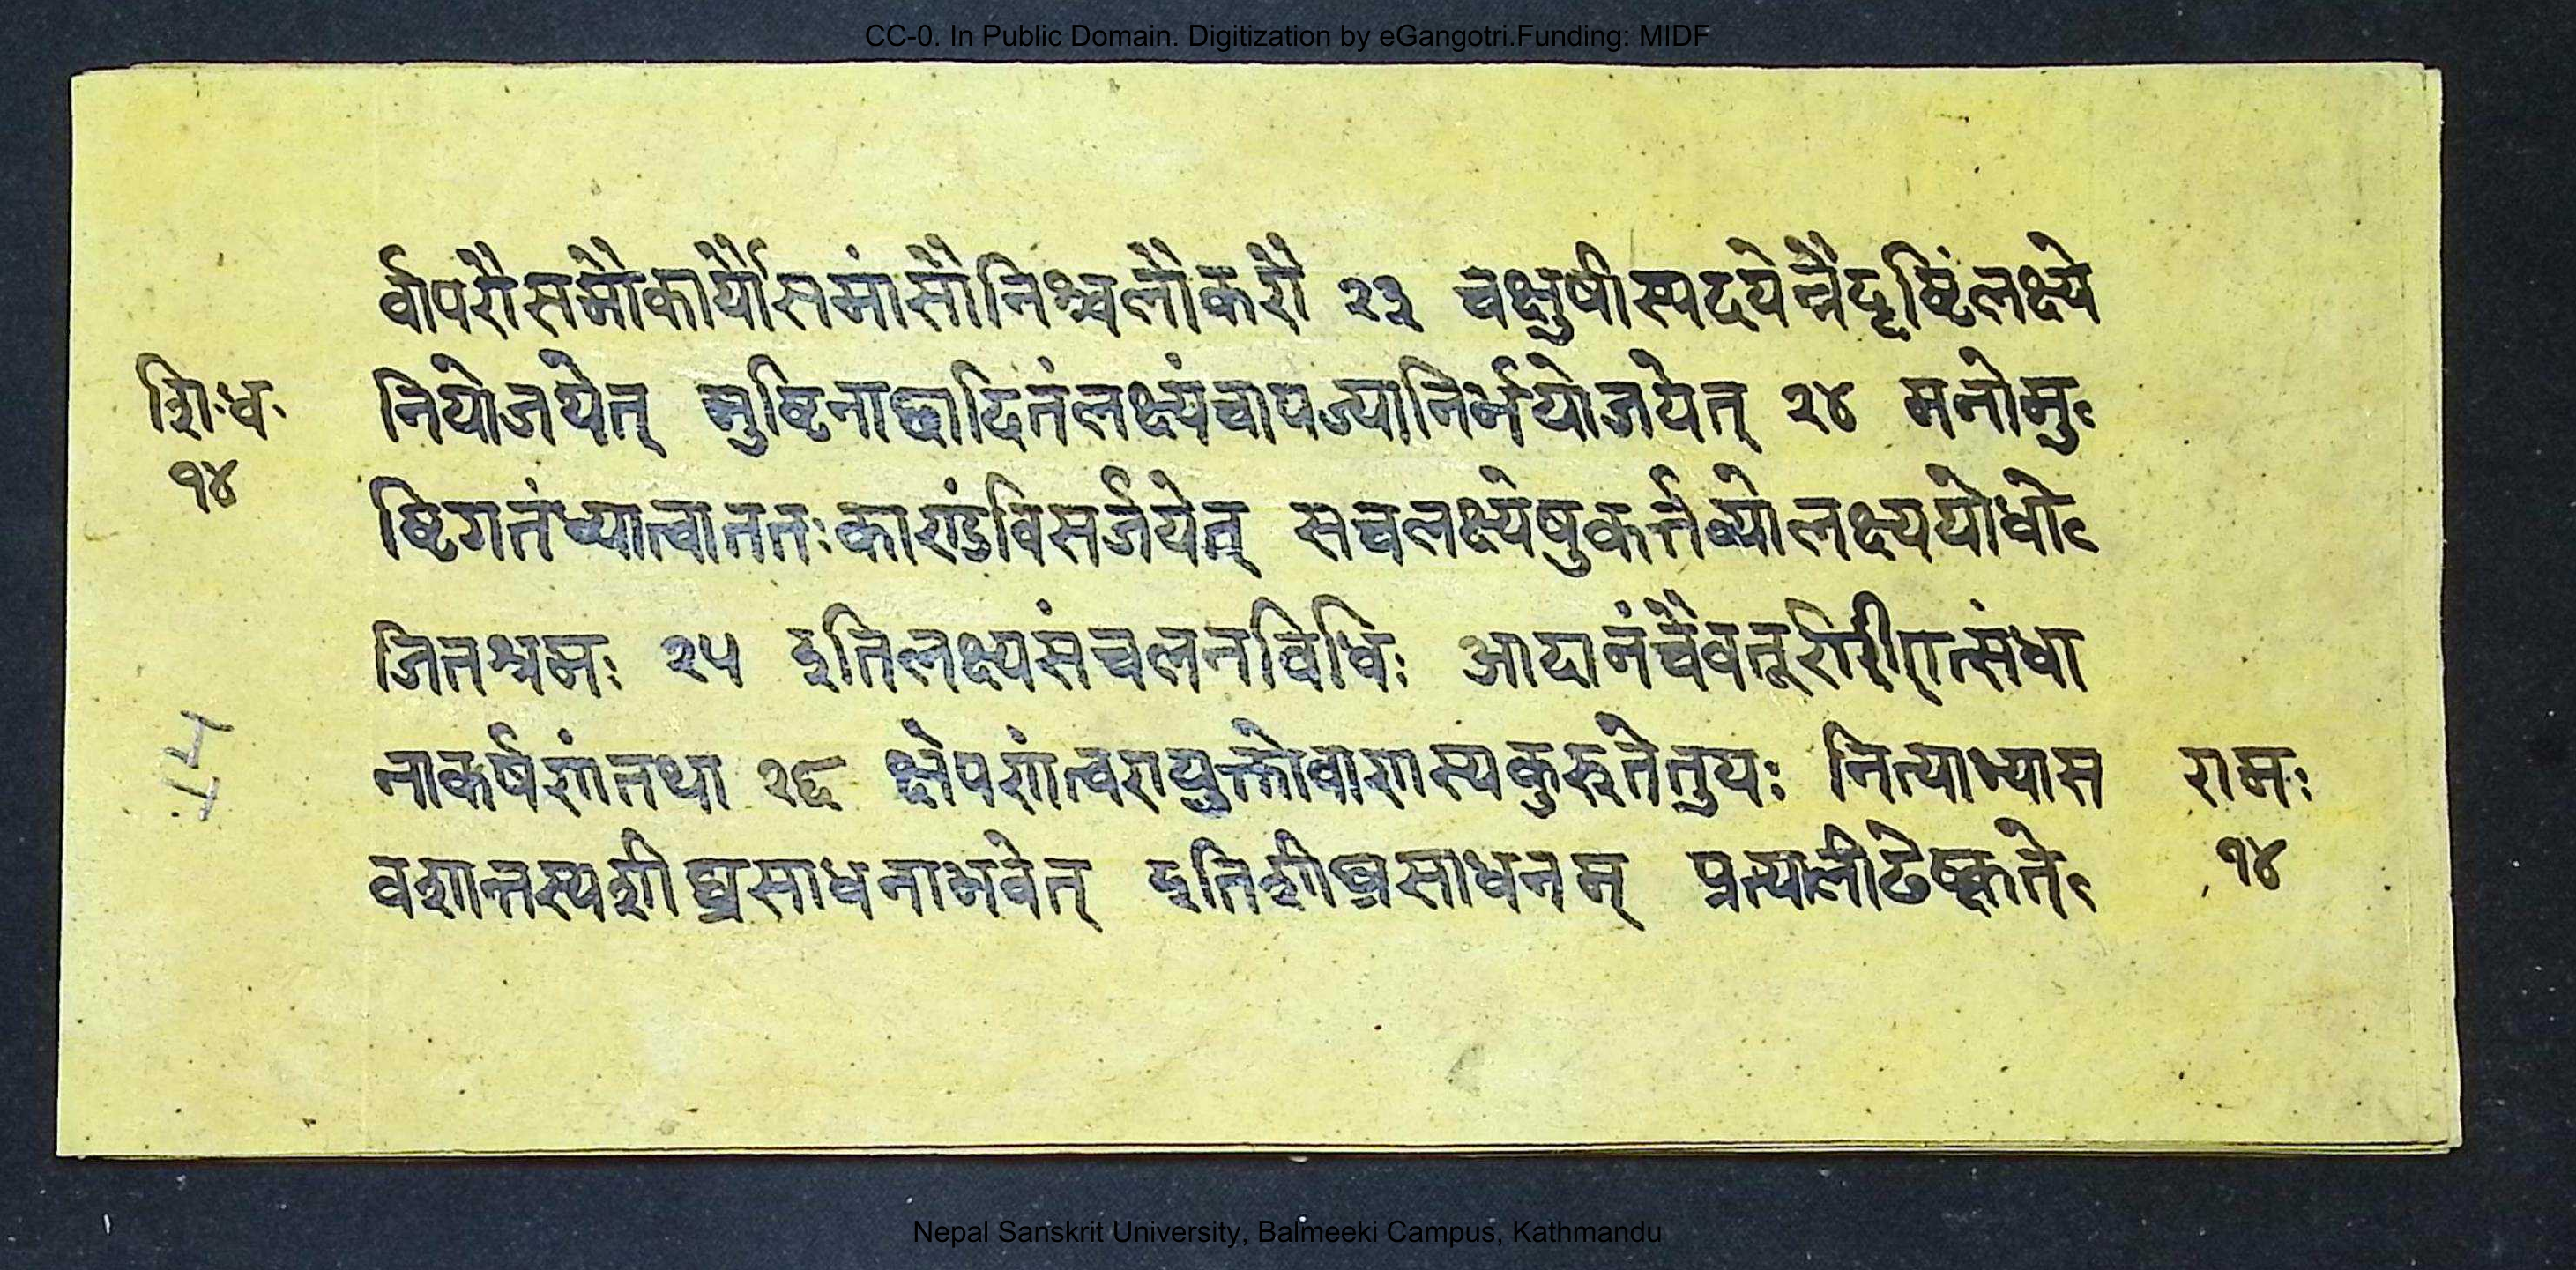 CC-0. In Public Domain. Digitization by eGangotri.Funding: MIDF
र्वापरौसमौकार्यौसमांसौनिश्चलौकरौ २३ चक्षुषीस्पदयेन्नैदृष्टिंलक्ष्ये
शिःधः नियोजयेत् मुष्टिनाछादितंलक्ष्यंचापज्यानिर्भयोजयेत् २४ मनोमु
१४ ष्टिगतंध्यात्वाततःकाराडंविसर्जयेत् सच्चलक्ष्येषुकर्त्तव्योलक्ष्ययोधो
जितश्रमः २५ इतिलक्ष्यसंचलनविधिः आदानंचैवतूरिारीात्संधा
14 नाकर्षणंतथा २६ क्षेपणंत्वरायुक्तोवाणस्यकुरुतेतुयः नित्याभ्यास रामः
वशात्तस्यशीघ्रसाधनाभवेत् इतिशीघ्रसाधनम् प्रत्यालीढेष्कृते १४
Nepal Sanskrit University, Balmeeki Campus, Kathmandu